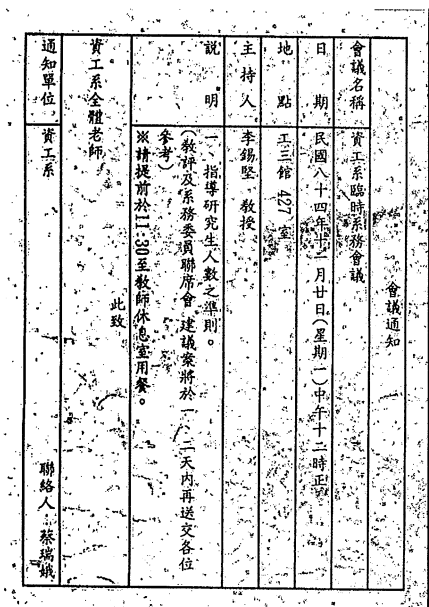 會議通知
會議名稱 資工系臨時系務會議
日期 民國八十四年十一月廿日(星期一)中午十二時正
地點 工三館 427 室
主持人 李錫堅 教授
説明 一、指導研究生人數之準則。
(教評及系務委員聯席會 建議案將於一、二天內再送交各位
參考)
※請提前於11:30至教師休息室用餐。
此致
資工系全體老師
通知單位 資工系 聯絡人 蔡瑞娥